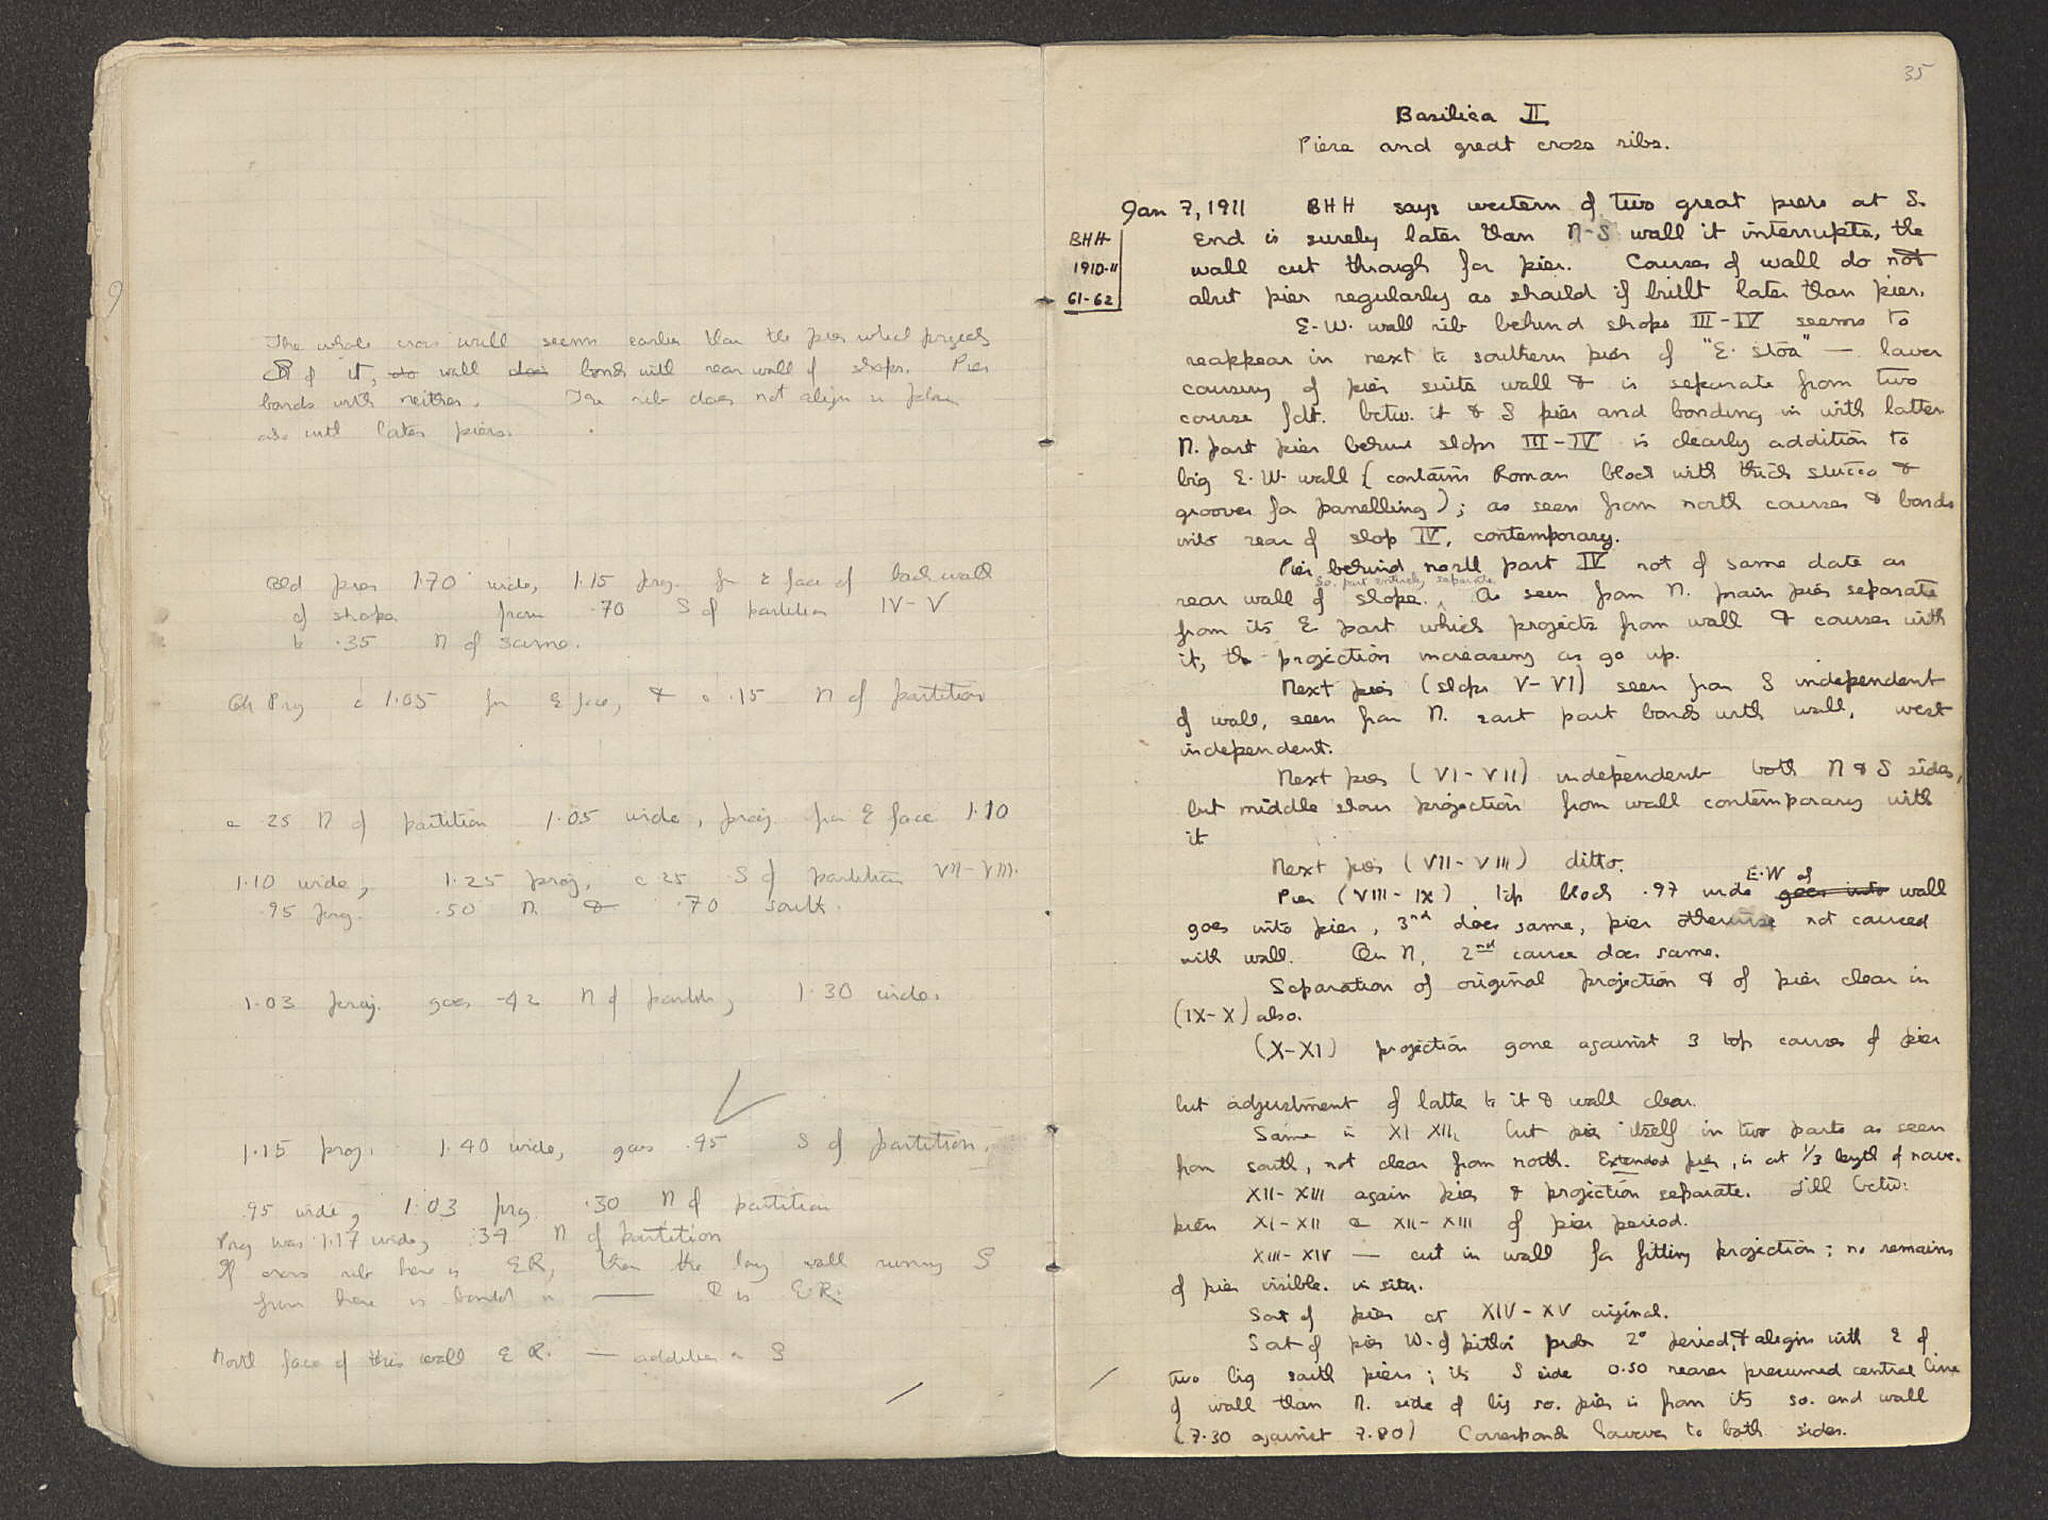 The whole cross wall seems earlier than the pier which projects
S of it, do wall does bonds with rear wall of shops. Pier
bonds with neither. The rib does not align in plan
also with later piers.
Old pier 1.70 wide, 1.15 proj. fr E face of back wall
of shops from .70 S of partition IV-V
to .35 N of same.
Proj c 1.05 fr E face, & c .15 N of partition
c 25 N of partition 1.05 wide, proj fr E face 1.10
1.10 wide, 1.25 proj, c 25 S of partition VII-VIII.
.95 proj. .50 N & .70 south.
1.03 proj. goes .42 N of partitn, 1.30 wide.
1.15 proj. 1.40 wide, goes .95 S of partition.
.95 wide, 1.03 proj .30 N of partition
Proj was 1.17 wide, .34 N of partition
If cross rib here is ER, then the long wall running S
from here is bonded in — & is E.R.
North face of this wall ER. — addition on S
35
Basilica II
Piers and great cross ribs.
Jan 7, 1911 BHH says western of two great piers at S.
BHH
1910-11
61-62
end is surely later than N-S wall it interrupts, the
wall cut through for pier. Courses of wall do not
abut pier regularly as should if built later than pier.
E-W. wall rib behind shops III-IV seems to
reappear in next to southern pier of "E. Stoa" — lower
coursing of pier suits wall & is separate from two
course fdt. betw. it & S pier and bonding in with latter.
N. part pier behind shops III-IV is clearly addition to
big E-W-wall (contains Roman block with thick stucco &
grooves for panelling); as seen from north courses & bonds
into rear of shop IV, contemporary.
Pier behind north part IV not of same date as
So. part entirely separate.
rear wall of shops. As seen from N. main pier separate
from its E part which projects from wall & courses with
it, the projection increasing as go up.
Next pier (shops V-VI) seen from S independent
of wall, seen from N. east part bonds with wall, west
independent.
Next pier (VI-VII) independent both N & S sides,
but middle shows projection from wall contemporary with
it
Next pier (VII-VIII) ditto.
E.W of
Pier (VIII-IX) Top block .97 wide goes into wall
goes into pier, 3rd does same, pier otherwise not coursed
with wall. On N, 2nd course does same.
Separation of original projection & of pier clear in
(IX-X) also.
(X-XI) projection gone against 3 top courses of pier
but adjustment of latter to it & wall clear.
Same in XI-XII, but pier itself in two parts as seen
from south, not clear from north. Extended pier, is at 1/3 length of nave.
XII-XIII again pier & projection separate. Sill betw:
piers XI-XII & XII-XIII of pier period.
XIII-XIV — cut in wall for fitting projection; no remains
of pier visible in situ.
Sort of pier at XIV-XV original.
Sort of pier W. of pithoi prob 2° period, & aligns with E of
two big south piers; its S side 0.50 nearer presumed central line
of wall than N. side of big so. pier is from its so. end wall
(7.30 against 7.80) Corresponds however to both sides.